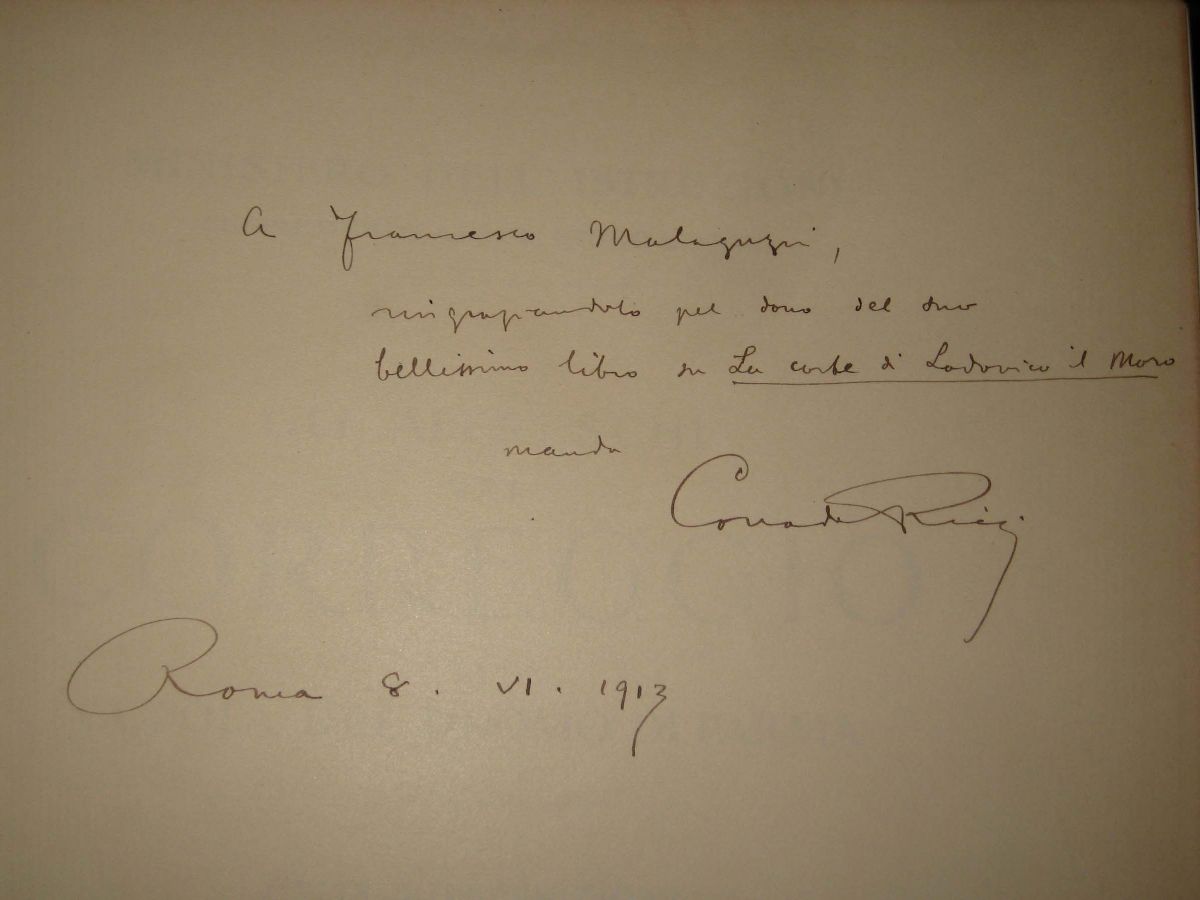 A Francesco Malaguzzi,
ringraziandolo pel dono del suo
bellissimo libro su La corte di Lodovico il Moro
manda
Corrado Ricci
Roma 8. VI. 1913